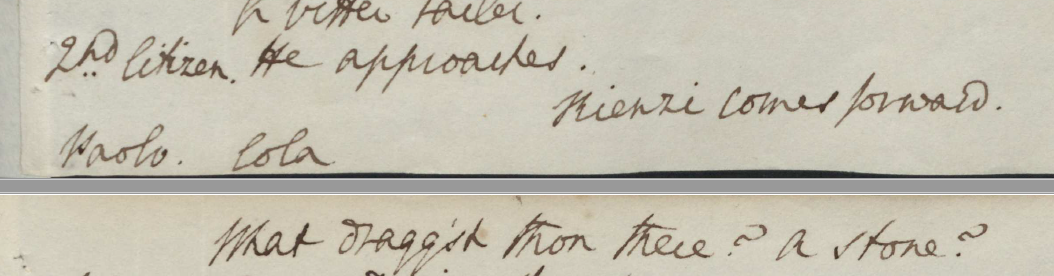 A bitter
2nd Citizen. He approaches.
Rienzi comes forward.
Paolo. Cola
What dragg'st thou there? A stone?